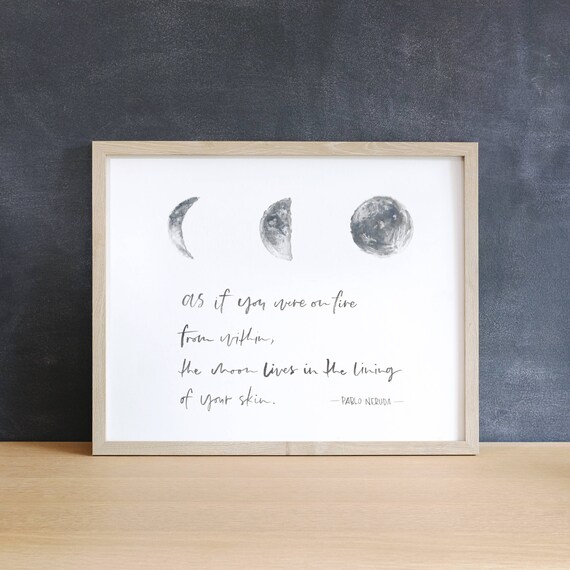 as if you were on fire
from within,
the moon lives in the lining
of your skin.
— PABLO NERUDA —